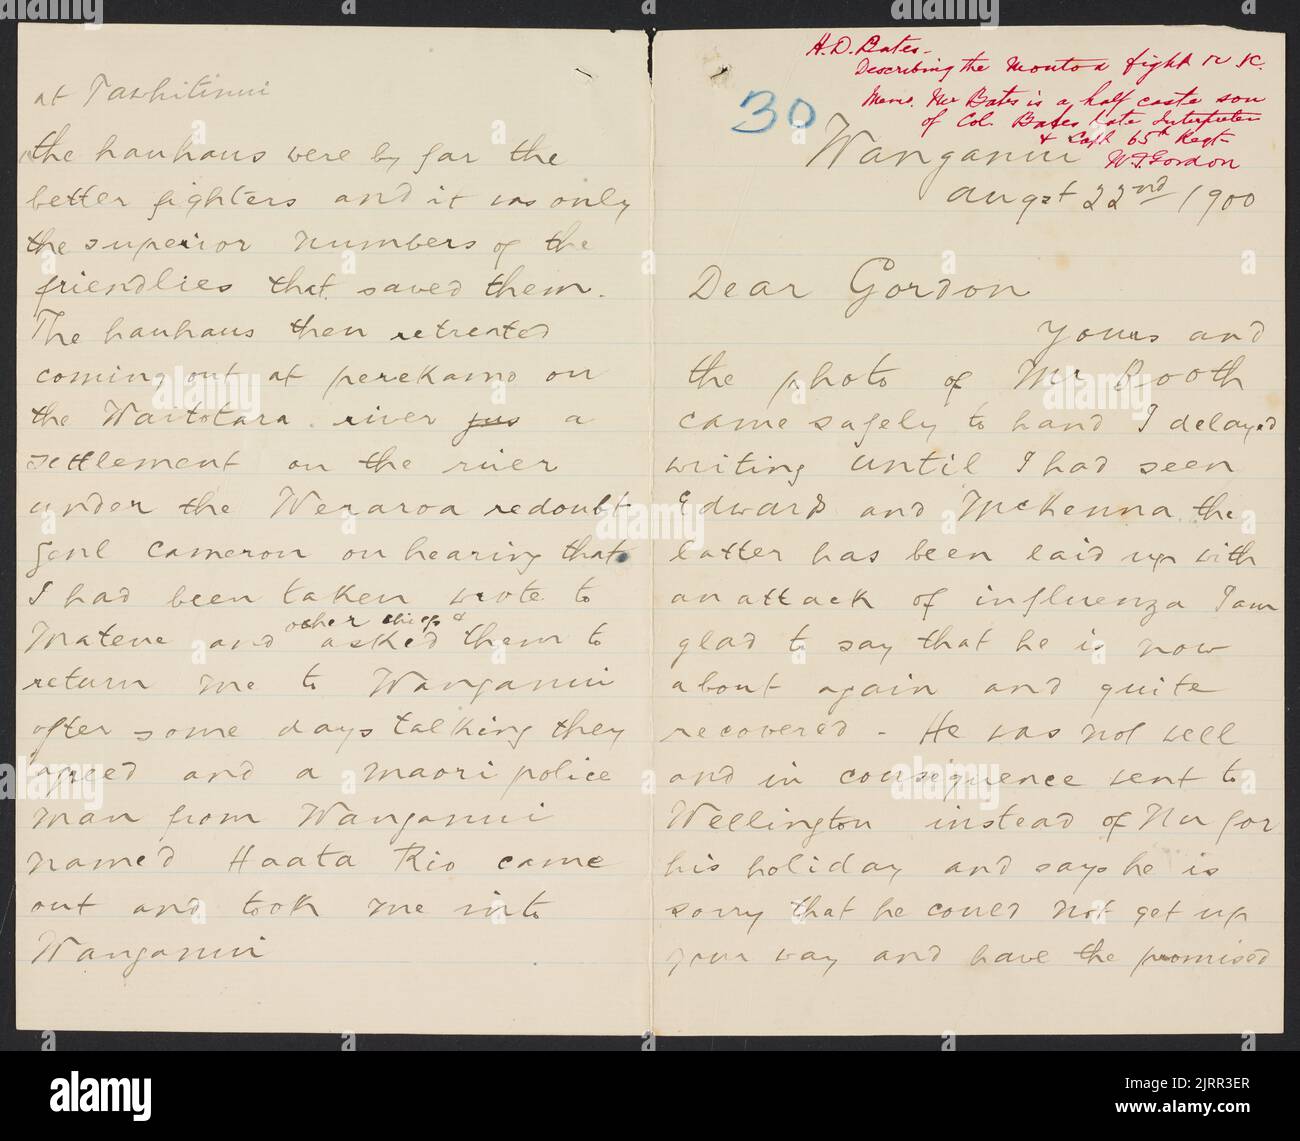 at Tawhitinui
the hauhaus were by far the
better fighters and it was only
the superior numbers of the
friendlies that saved them.
The hauhaus then retreated
coming out at perekamo on
the Waitotara river jus a
settlement on the river
under the Weraroa redoubt
Genl Cameron on hearing that
I had been taken wrote to
other chiefs &
Matene and asked them to
return me to Wanganui
after some days talking they
agreed and a maori police
man from Wanganui
named Haata Rio came
out and took me into
Wanganui
H. D. Bates.
Describing the Moutoa fight &c.
Memo. Mr Bates is a half caste son
of Col. Bates Late Interpreter
& Capt 65th Regt
W. F. Gordon
30
Wanganui
Augst 22nd 1900
Dear Gordon
Yours and
the photo of Mr Booth
came safely to hand I delayed
writing until I had seen
Edwards and McKenna the
latter has been laid up with
an attack of influenza I am
glad to say that he is now
about again and quite
recovered - He was not well
and in consequence went to
Wellington instead of Nu for
his holiday and says he is
sorry that he could not get up
your way and have the promised
alamy
Image ID: 2JRR3ER
www.alamy.com